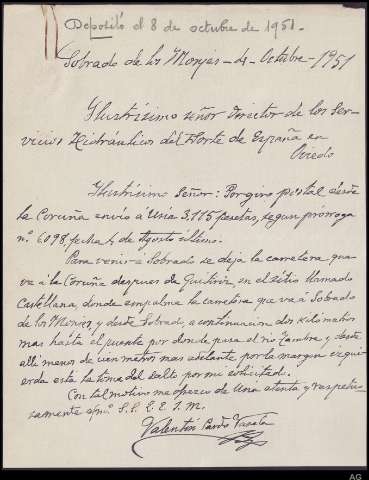 Depositó el 8 de octubre de 1951.
Sobrado de los Monjes - 4 - Octubre - 1951
Ilustrísimo señor Director de los Ser-
vicios Hidráulicos del Norte de España en
Oviedo
Ilustrísimo Señor: Por giro postal desde
la Coruña envío a Usia 3.115 pesetas, segun prórroga
nº. 6.098, fecha 4 de Agosto último.
Para venir a Sobrado se deja la carretera que
va á la Coruña despues de Guitiriz, en el sitio llamado
Castellana, donde empalma la carretera que va á Sobrado
de los Monjes y desde Sobrado, a continuación dos kilometros
mas hasta el puente por donde pasa el río Tambre y desde
alli menos de cien metros mas adelante por la margen izqui-
erda esta la toma del salto por mi solicitad.
Con tal motivo me ofrezco de Usia atento y respetuo-
samente s. s. q. e. s. m.
Valentín Pardo Varela
AG